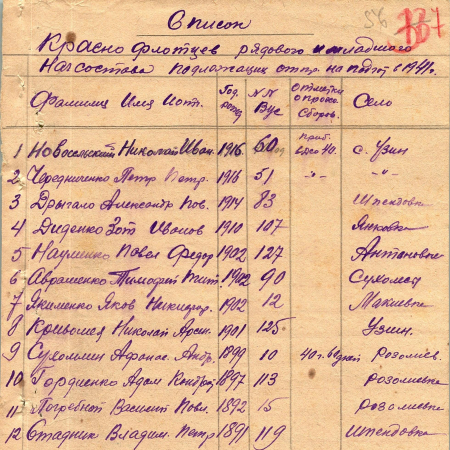 Список 56 167
Краснофлотцев рядового и младшего
Начсостава подлежащих отпр. на подгот в 1941г.
Фамилия Имя Отч. Год рожд NN Вус Отметки о прохо. Сборов. Село
1 Новосельский Николай Иван 1916 60 приб. в дно 40. с. Узин
2 Чередниченко Петр Петр. 1916 51 -"- -"-
3 Дрыгало Александр Пов. 1914 83 Шпендовка
4 Диденко Зот Иванов 1910 107 Янковка
5 Науменко Повел Федор 1902 127 Антоновка
6 Авраменко Тимофей Тит. 1902 90 Сухолесы
7 Якименко Яков Никифор. 1902 12 Макиевка
8 Кривошея Николай Арси. 1901 125 Узин.
9 Сухомлин Афанас. Андр. 1899 10 40г. Розолиев.
10 Гордиенко Адам Кондрат 1897 113 Розолиевка
11 Погребной Василий Повл. 1892 15 Розолиевка
12 Стадник Владим. Петр 1891 119 Шпендовка